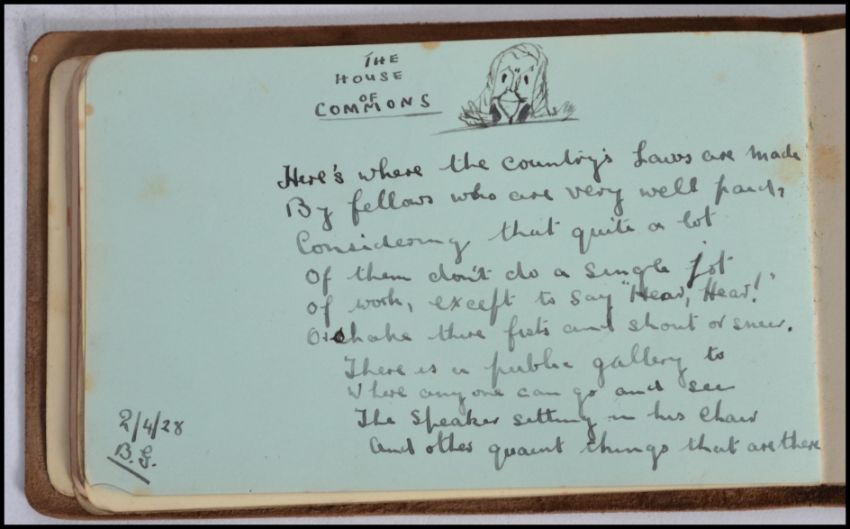 THE
HOUSE
OF
COMMONS
Here's where the country's Laws are made
By fellows who are very well paid,
Considering that quite a lot
Of them don't do a single jot
Of work, except to say "Hear, Hear!"
Or shake there fists and shout or sneer.
There is a public gallery to
Where anyone can go and see
The Speaker sitting in his Chair
And other quaint things that are there
2/4/28
B.G.